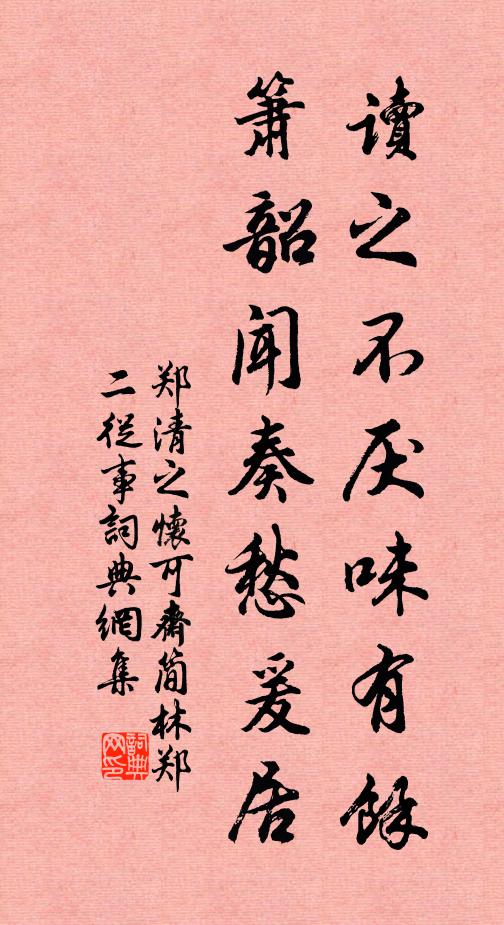 讀之不厌味有餘
箫韶闻奏愁爰居
郑清之懷可齋简林郑
二從事詞典網集
詞典网印